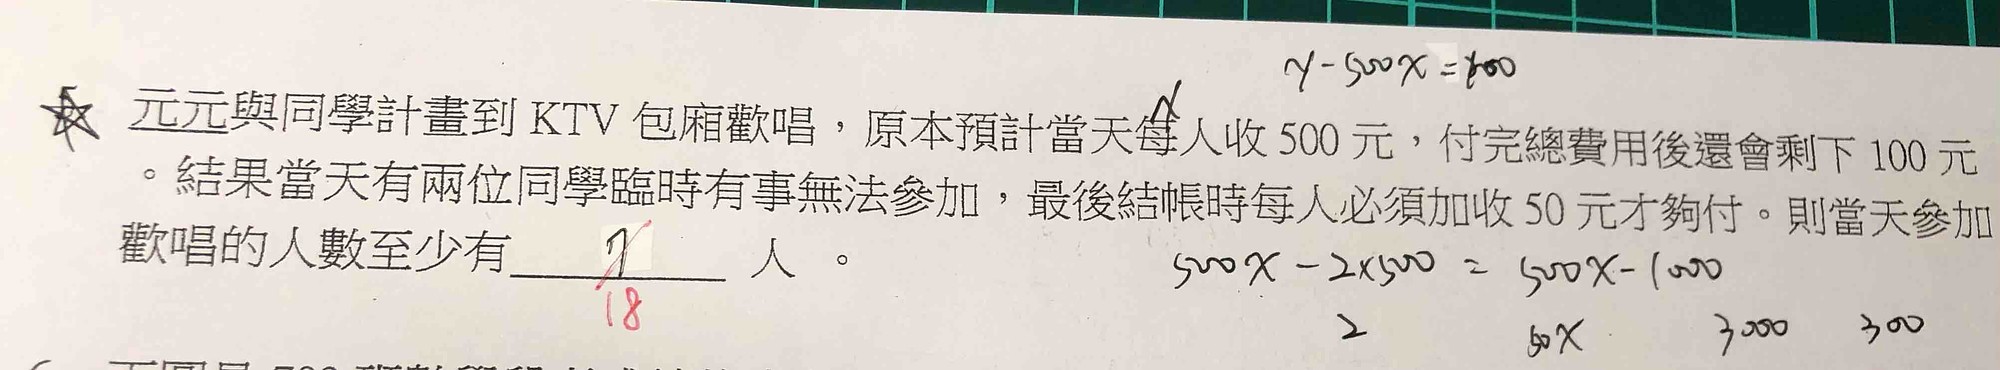 y-500x=100
元元與同學計畫到 KTV 包廂歡唱，原本預計當天每人收 500 元，付完總費用後還會剩下 100 元
。結果當天有兩位同學臨時有事無法參加，最後結帳時每人必須加收 50 元才夠付。則當天參加
歡唱的人數至少有 7 人 。
500x-2×500 = 500x-1000
18
2 50x 3000 300